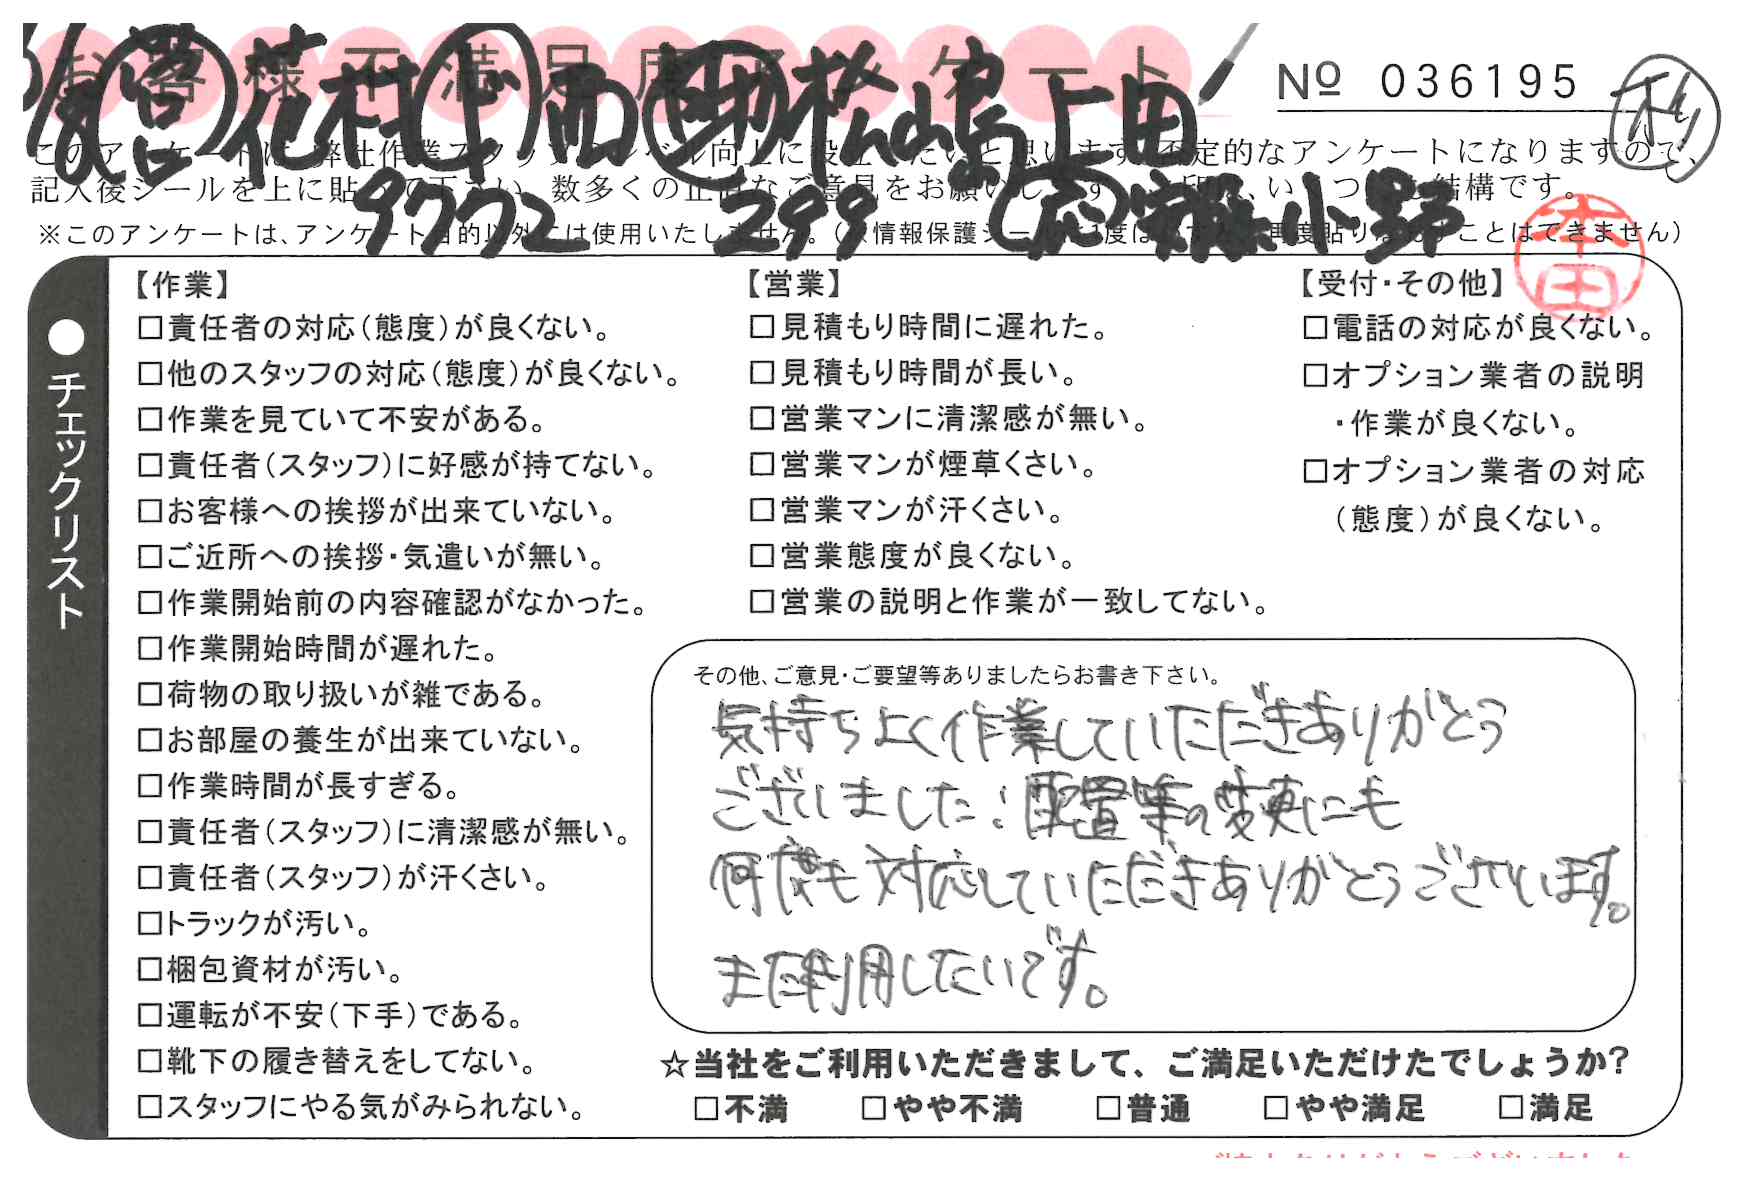 お客様不満足度アンケート
№ 036195
花村 西 松嶋 上田
9772 299 安藤 小野
本田
記入後シールを上に貼って下さい。数多くの正直なご意見をお願いします
※このアンケートは、アンケート目的以外には使用いたしません。
チェックリスト
【作業】
□責任者の対応(態度)が良くない。
□他のスタッフの対応(態度)が良くない。
□作業を見ていて不安がある。
□責任者(スタッフ)に好感が持てない。
□お客様への挨拶が出来ていない。
□ご近所への挨拶・気遣いが無い。
□作業開始前の内容確認がなかった。
□作業開始時間が遅れた。
□荷物の取り扱いが雑である。
□お部屋の養生が出来ていない。
□作業時間が長すぎる。
□責任者(スタッフ)に清潔感が無い。
□責任者(スタッフ)が汗くさい。
□トラックが汚い。
□梱包資材が汚い。
□運転が不安(下手)である。
□靴下の履き替えをしてない。
□スタッフにやる気がみられない。
【営業】
□見積もり時間に遅れた。
□見積もり時間が長い。
□営業マンに清潔感が無い。
□営業マンが煙草くさい。
□営業マンが汗くさい。
□営業態度が良くない。
□営業の説明と作業が一致してない。
【受付・その他】
□電話の対応が良くない。
□オプション業者の説明
・作業が良くない。
□オプション業者の対応
(態度)が良くない。
その他、ご意見・ご要望等ありましたらお書き下さい。
気持ちよく作業していただきありがとう
ございました！配置等の変更にも
何度も対応していただきありがとうございます。
また利用したいです。
☆当社をご利用いただきまして、ご満足いただけたでしょうか?
□不満 □やや不満 □普通 □やや満足 □満足